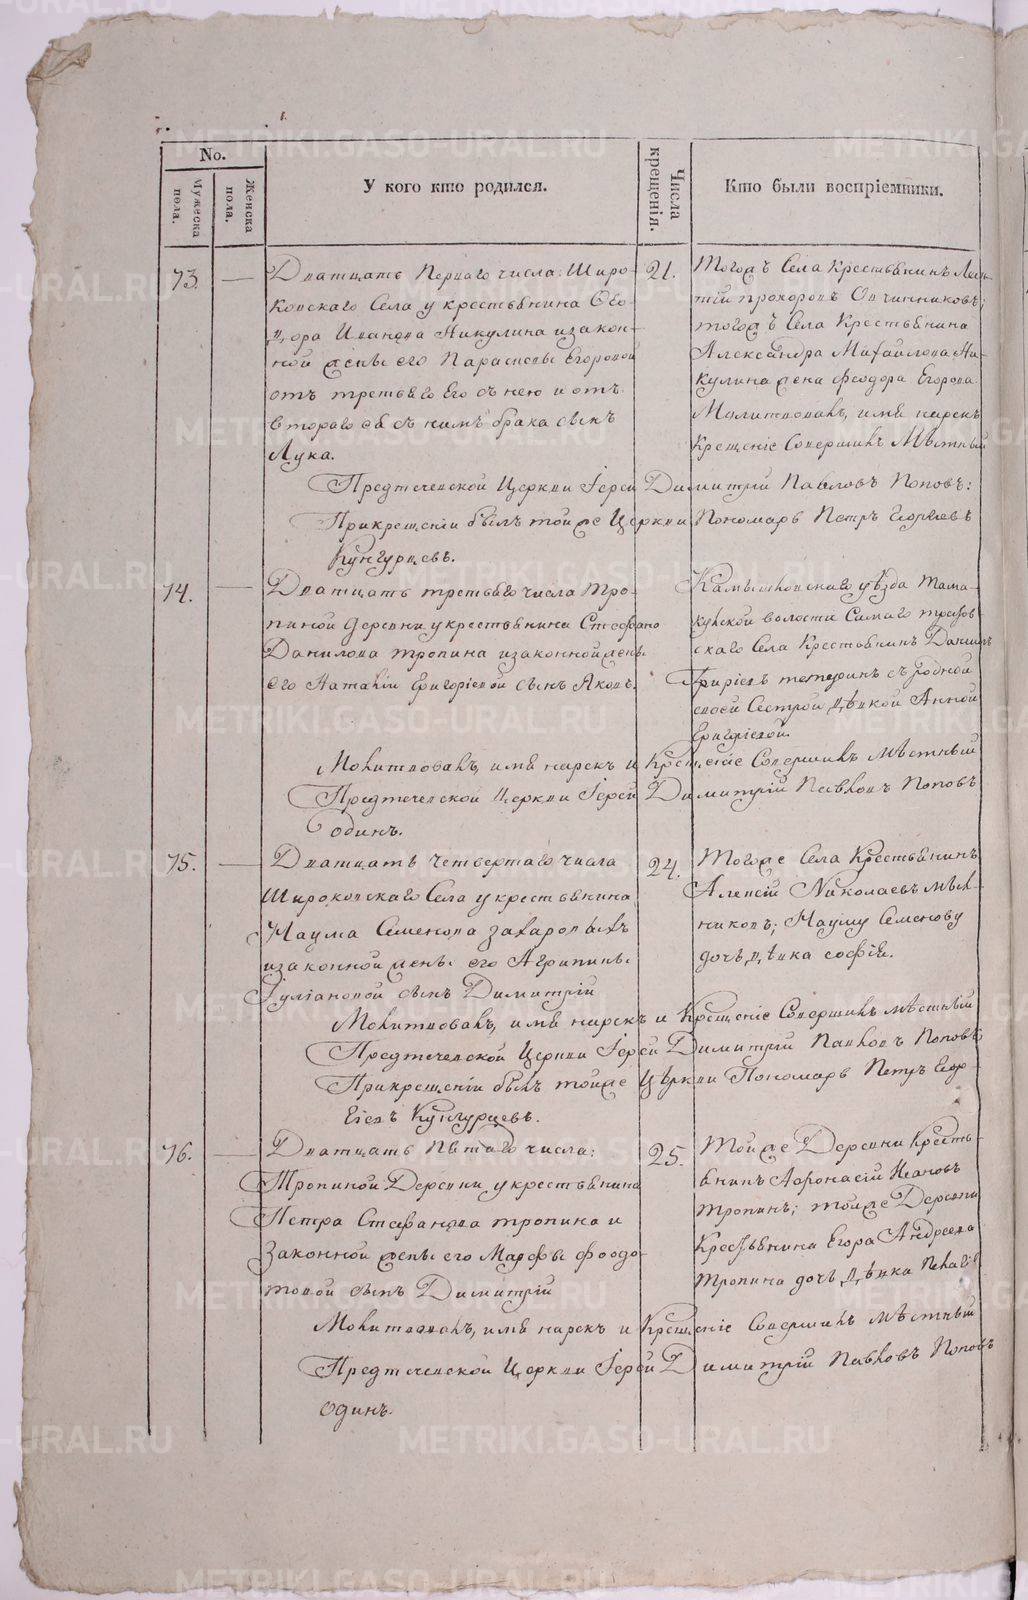 No.
Мужеска пола.
Женска пола.
У кого кто родился.
Числа крещенія.
Кто были воспріемники.
73.
Дватцать Перваго числа: Широ-
ковскаго Села у крестьянина Ѳео-
дора Иванова Никулина и закон-
ной жены его Парасковьи Егоровой
отъ третьяго Его съ нею и отъ
втораго ея съ нимъ брака сынъ
Лука.
21.
Тогожъ Села Крестьянинъ
Прохоровъ Овчинниковъ;
тогожъ Села Крестьянина
Александра Михайлова Ни-
кулина жена Ѳеодора Егорова.
Молитвовалъ, имя нарекъ
Крещеніе Совершилъ Мѣстный
Предтеченской Церкви Іерей Димитрій Павловъ Поповъ:
При крещеніи былъ тойже Церкви Пономарь Петръ Георгіевъ
Кунгурцевъ.
74.
Дватцать третьяго числа Тро-
пиной деревни у крестьянина Стефана
Данилова Тропина и законной жены
его Наталіи Григоріевой сынъ Яковъ.
Камышловскаго уѣзда Тама-
кульской волости
скаго Села Крестьянинъ Даніилъ
съ родной
своей Сестрой дѣвкой Анной
Григоріевой.
Молитвовалъ, имя нарекъ и Крещеніе Совершилъ мѣстный
Предтеченской Церкви Іерей Димитрій Павловъ Поповъ
одинъ.
75.
Дватцать четвертаго числа
Широковскаго Села у крестьянина
Наума Семенова Захаровыхъ
и законной жены его Агрипины
Іуліановой сынъ Димитрій
24.
Тогоже Села Крестьянинъ
Алексій Николаевъ Мѣль-
никовъ; Науму Семенову
дочь дѣвка Софія.
Молитвовалъ, имя нарекъ и Крещеніе Совершилъ мѣстный
Предтеченской Церкви Іерей Димитрій Павловъ Поповъ
При крещеніи былъ тойже Церкви Пономарь Петръ Геор-
гіевъ Кунгурцевъ.
76.
Дватцать Пятаго числа:
Тропиной Деревни у крестьянина
Петра Стефанова Тропина и
Законной жены его Марфы Ѳеодо-
товой сынъ Димитрій
25.
Тойже Деревни Кресть-
янинъ Афонасій Ивановъ
Тропинъ; тойже Деревни
Крестьянина Егора Андреева
Тропина дочь дѣвка Пелагія
Молитвовалъ, имя нарекъ и Крещеніе Совершилъ мѣстный
Предтеченской Церкви Іерей Димитрій Павловъ Поповъ
одинъ.
METRIKI.GASO-URAL.RU